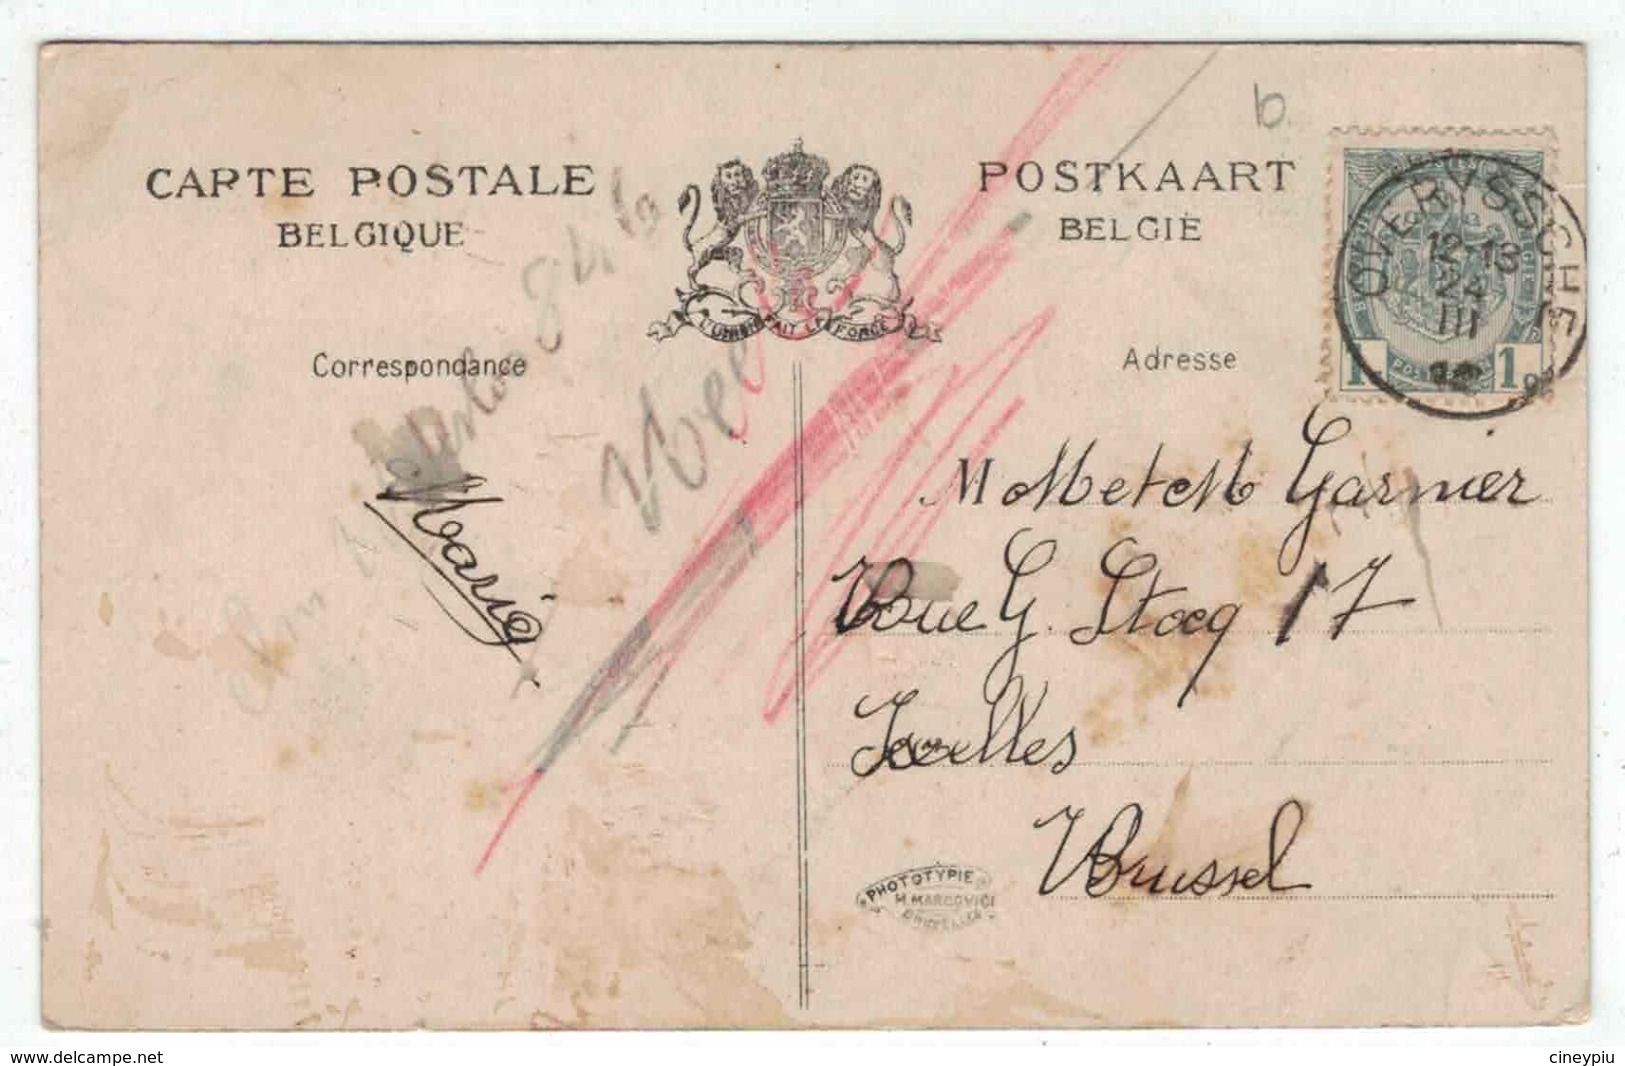 b.
CARTE POSTALE
BELGIQUE
POSTKAART
BELGIË
L'UNION FAIT LA FORCE
OVERYSSCHE
12-13
24
III
12
1 POSTERIJEN 1
Correspondance
Adresse
Marie
M et M Garnier
Rue G. Stocq 17
Ixelles
Brussel
PHOTOTYPIE
M. MARCOVICI
BRUXELLES
www.delcampe.net
cineypiu